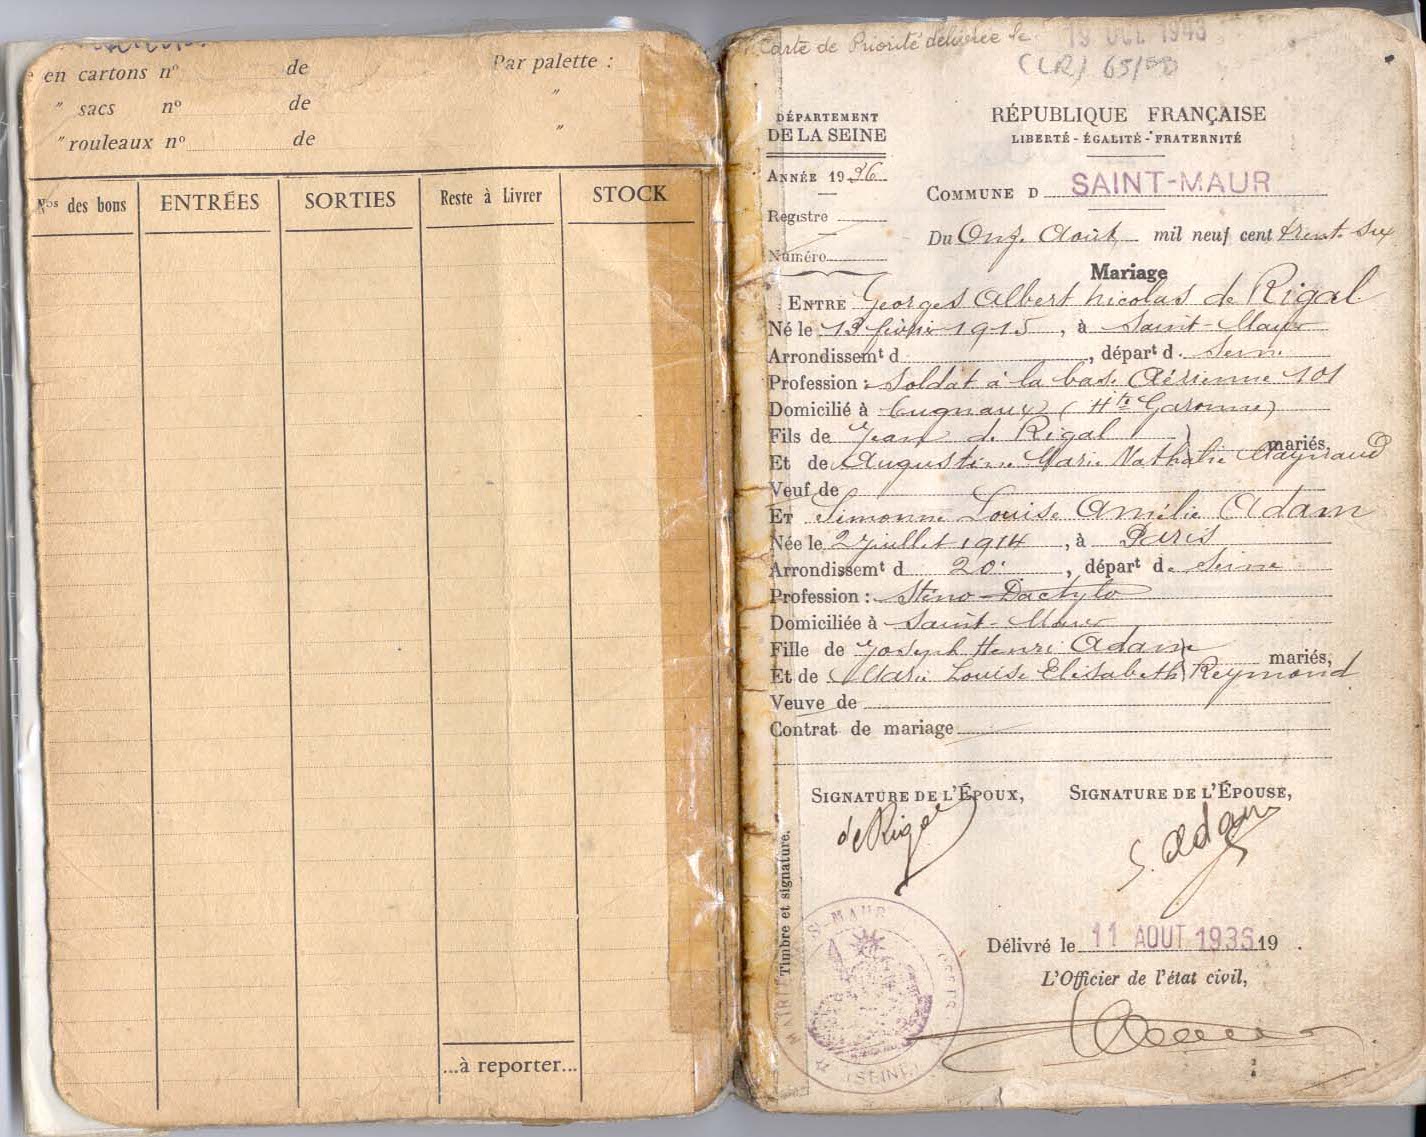 e en cartons nº de Par palette :
" sacs nº de "
" rouleaux nº de "
Nos des bons ENTRÉES SORTIES Reste à Livrer STOCK
...à reporter...
Carte de Priorité délivrée le 19 OCT 1943
(LR) 65/
DÉPARTEMENT
DE LA SEINE
RÉPUBLIQUE FRANÇAISE
LIBERTÉ - ÉGALITÉ - FRATERNITÉ
ANNÉE 1936
COMMUNE D SAINT-MAUR
Registre
Du Onze Août mil neuf cent trente six
Numéro
Mariage
ENTRE Georges Albert Nicolas de Rigal
Né le 13 février 1915, à Saint-Maur
Arrondissemt d , départ d. Seine
Profession : Soldat à la base Aérienne 101
Domicilié à Cugnaux (Hte Garonne)
Fils de Jean de Rigal
mariés,
Et de Augustine Marie Nathalie Raynaud
Veuf de
ET Simonne Louise Amélie Adam
Née le 2 juillet 1914, à Paris
Arrondissemt d 20e, départ d. Seine
Profession : Sténo-Dactylo
Domiciliée à Saint-Maur
Fille de Joseph Henri Adam
mariés,
Et de Marie Louise Elisabeth Reymond
Veuve de
Contrat de mariage
SIGNATURE DE L'ÉPOUX, SIGNATURE DE L'ÉPOUSE,
de Rigal
S. Adam
Timbre et signature.
MAIRIE St MAUR
(SEINE)
Délivré le 11 AOUT 1936 19 .
L'Officier de l'état civil,